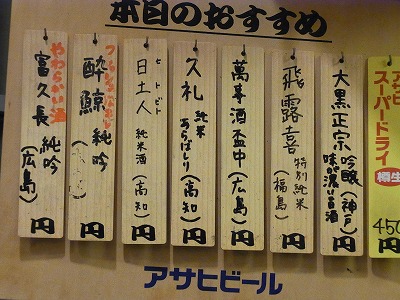 本日のおすすめ
アサヒ
スーパードライ
樽生
450
円
大黒正宗 吟醸(神戸)
味が濃い旨酒
円
飛露喜 特別純米(福島)
円
萬事酒盃中(広島)
円
久礼 純米
あらばしり(高知)
円
ヒトビト
日土人 純米酒(高知)
円
酔鯨 純吟
円
やわらかい酒
富久長 純吟(広島)
円
アサヒビール